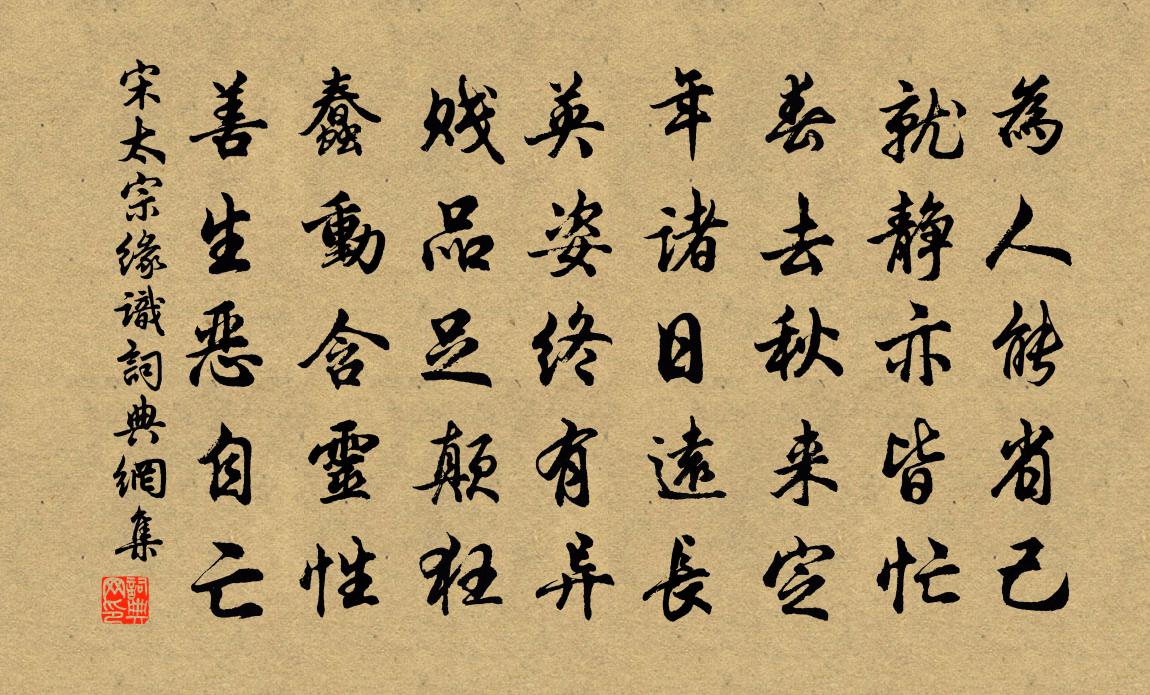 為人能省己
就静亦皆忙
春去秋来定
年诸日遠長
英姿终有异
贱品足颠狂
蠢動含靈性
善生惡自亡
宋太宗緣識詞典網集
詞典网印